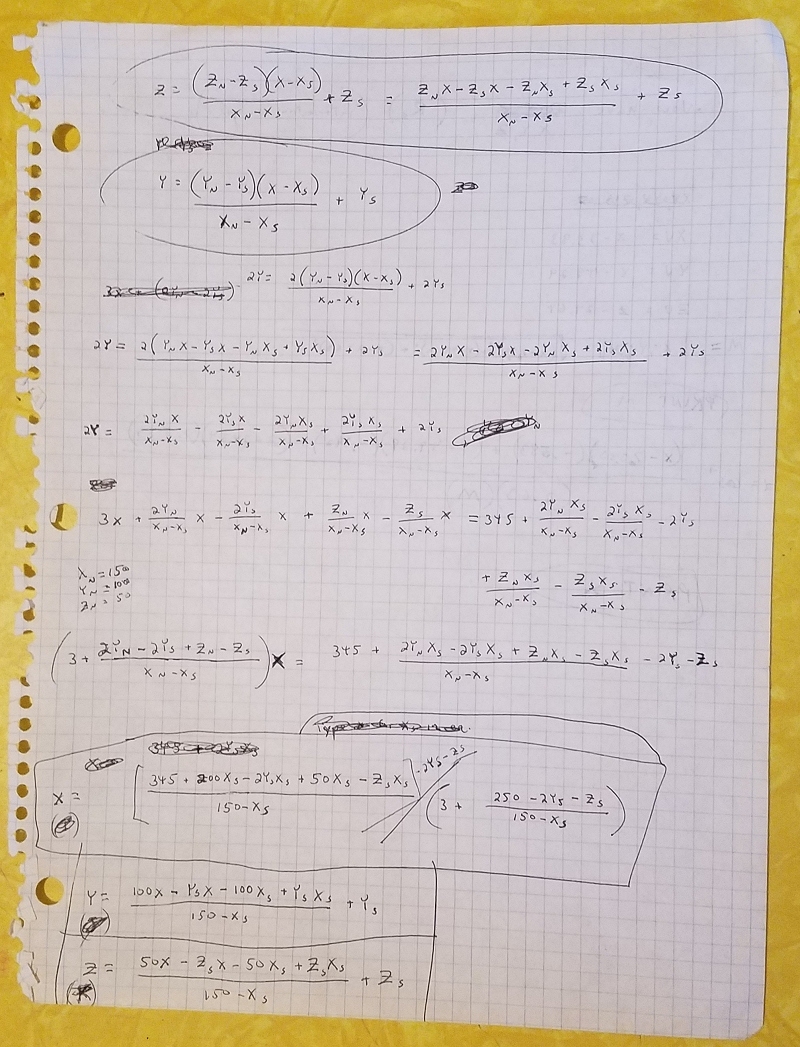 Z = (Z_N - Z_S)(X - X_S) / X_N - X_S + Z_S = Z_N X - Z_S X - Z_N X_S + Z_S X_S / X_N - X_S + Z_S
Y = (Y_N - Y_S)(X - X_S) / X_N - X_S + Y_S
2Y = 2(Y_N - Y_S)(X - X_S) / X_N - X_S + 2Y_S
2Y = 2(Y_N X - Y_S X - Y_N X_S + Y_S X_S) / X_N - X_S + 2Y_S = 2Y_N X - 2Y_S X - 2Y_N X_S + 2Y_S X_S / X_N - X_S + 2Y_S =
2Y = 2Y_N X / X_N - X_S - 2Y_S X / X_N - X_S - 2Y_N X_S / X_N - X_S + 2Y_S X_S / X_N - X_S + 2Y_S
3X + 2Y_N / X_N - X_S X - 2Y_S / X_N - X_S X + Z_N / X_N - X_S X - Z_S / X_N - X_S X = 345 + 2Y_N X_S / X_N - X_S - 2Y_S X_S / X_N - X_S - 2Y_S
+ Z_N X_S / X_N - X_S - Z_S X_S / X_N - X_S - Z_S
X_N = 150
Y_N = 100
Z_N = 50
(3 + 2Y_N - 2Y_S + Z_N - Z_S / X_N - X_S) X = 345 + 2Y_N X_S - 2Y_S X_S + Z_N X_S - Z_S X_S / X_N - X_S - 2Y_S - Z_S
X = [345 + 200X_S - 2Y_S X_S + 50X_S - Z_S X_S / 150 - X_S] - 2Y_S - Z_S / (3 + 250 - 2Y_S - Z_S / 150 - X_S)
Y = 100X - Y_S X - 100X_S + Y_S X_S / 150 - X_S + Y_S
Z = 50X - Z_S X - 50X_S + Z_S X_S / 150 - X_S + Z_S